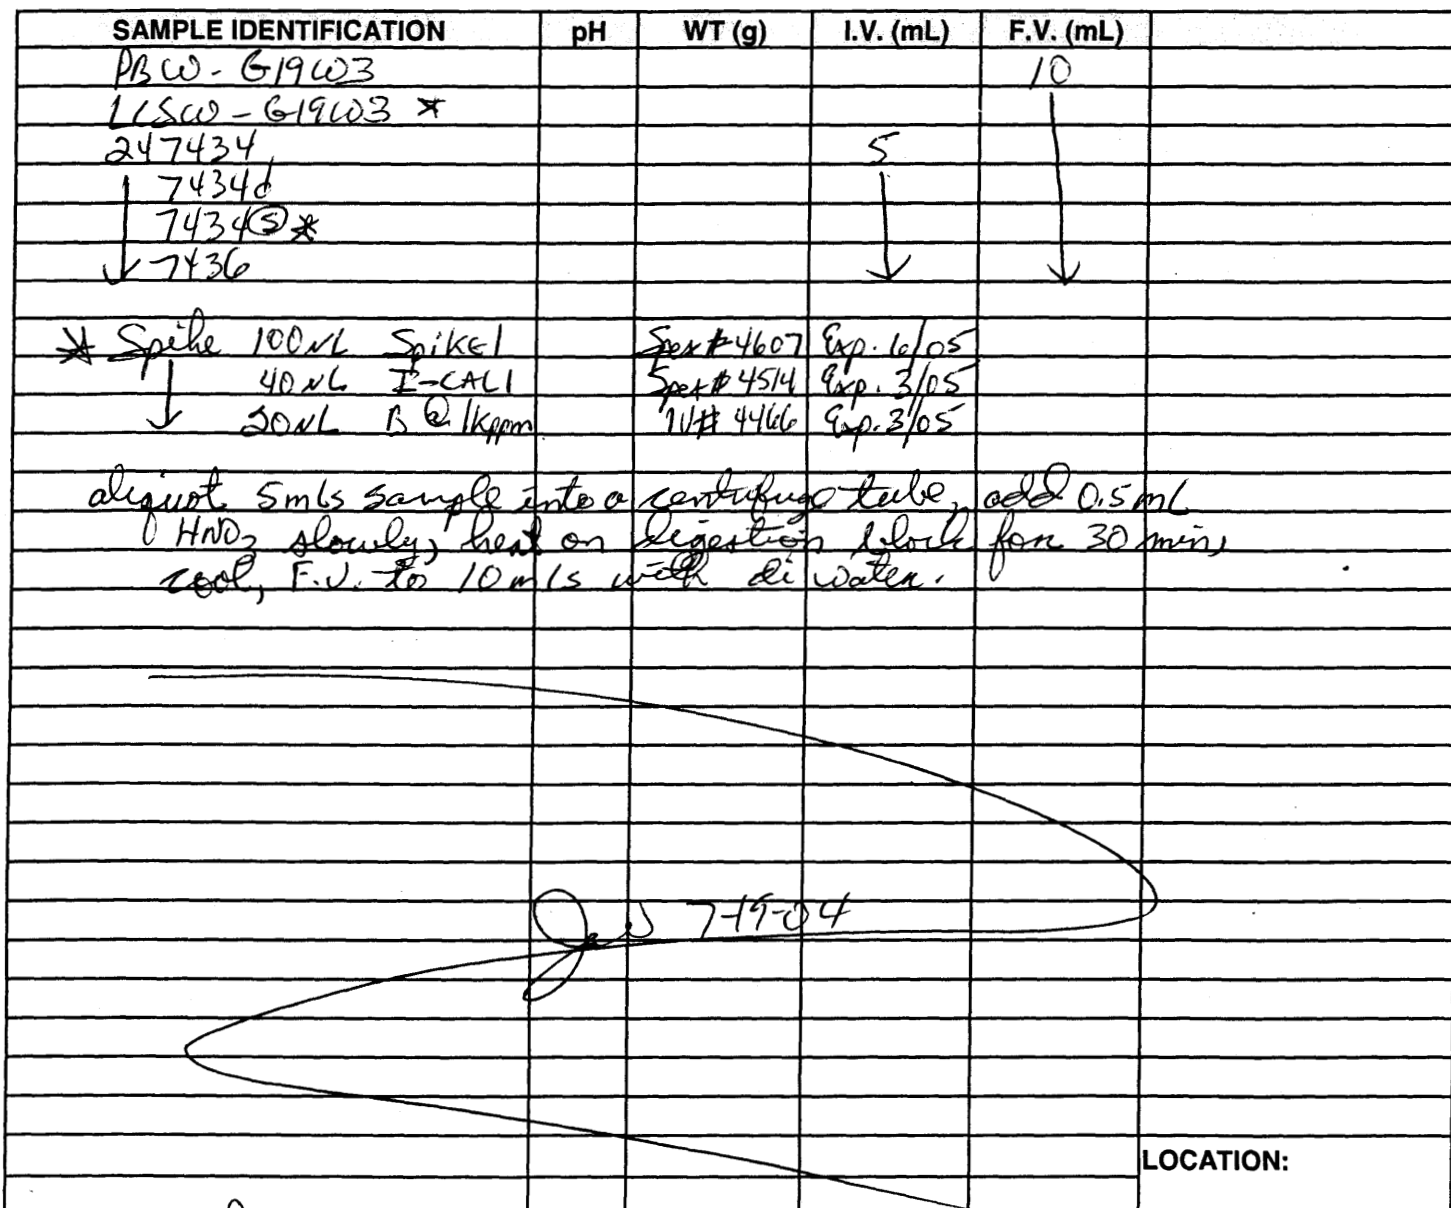 SAMPLE IDENTIFICATION pH WT (g) I.V. (mL) F.V. (mL)
PBW - G19W3 10
LCSW - G19W3 *
247434 5
7434d
7434 S *
7436
* Spike 100uL Spike1 Spex# 4607 Exp. 6/05
40uL I-CAL1 Spex# 4514 Exp. 3/05
20uL B @ 1Kppm IV# 4466 Exp. 3/05
aliquot 5mls sample into a centrifuge tube, add 0.5mL
HNO3 slowly, heat on digestion block for 30 min,
cool, F.V. to 10mls with di water.
7-19-04
LOCATION: